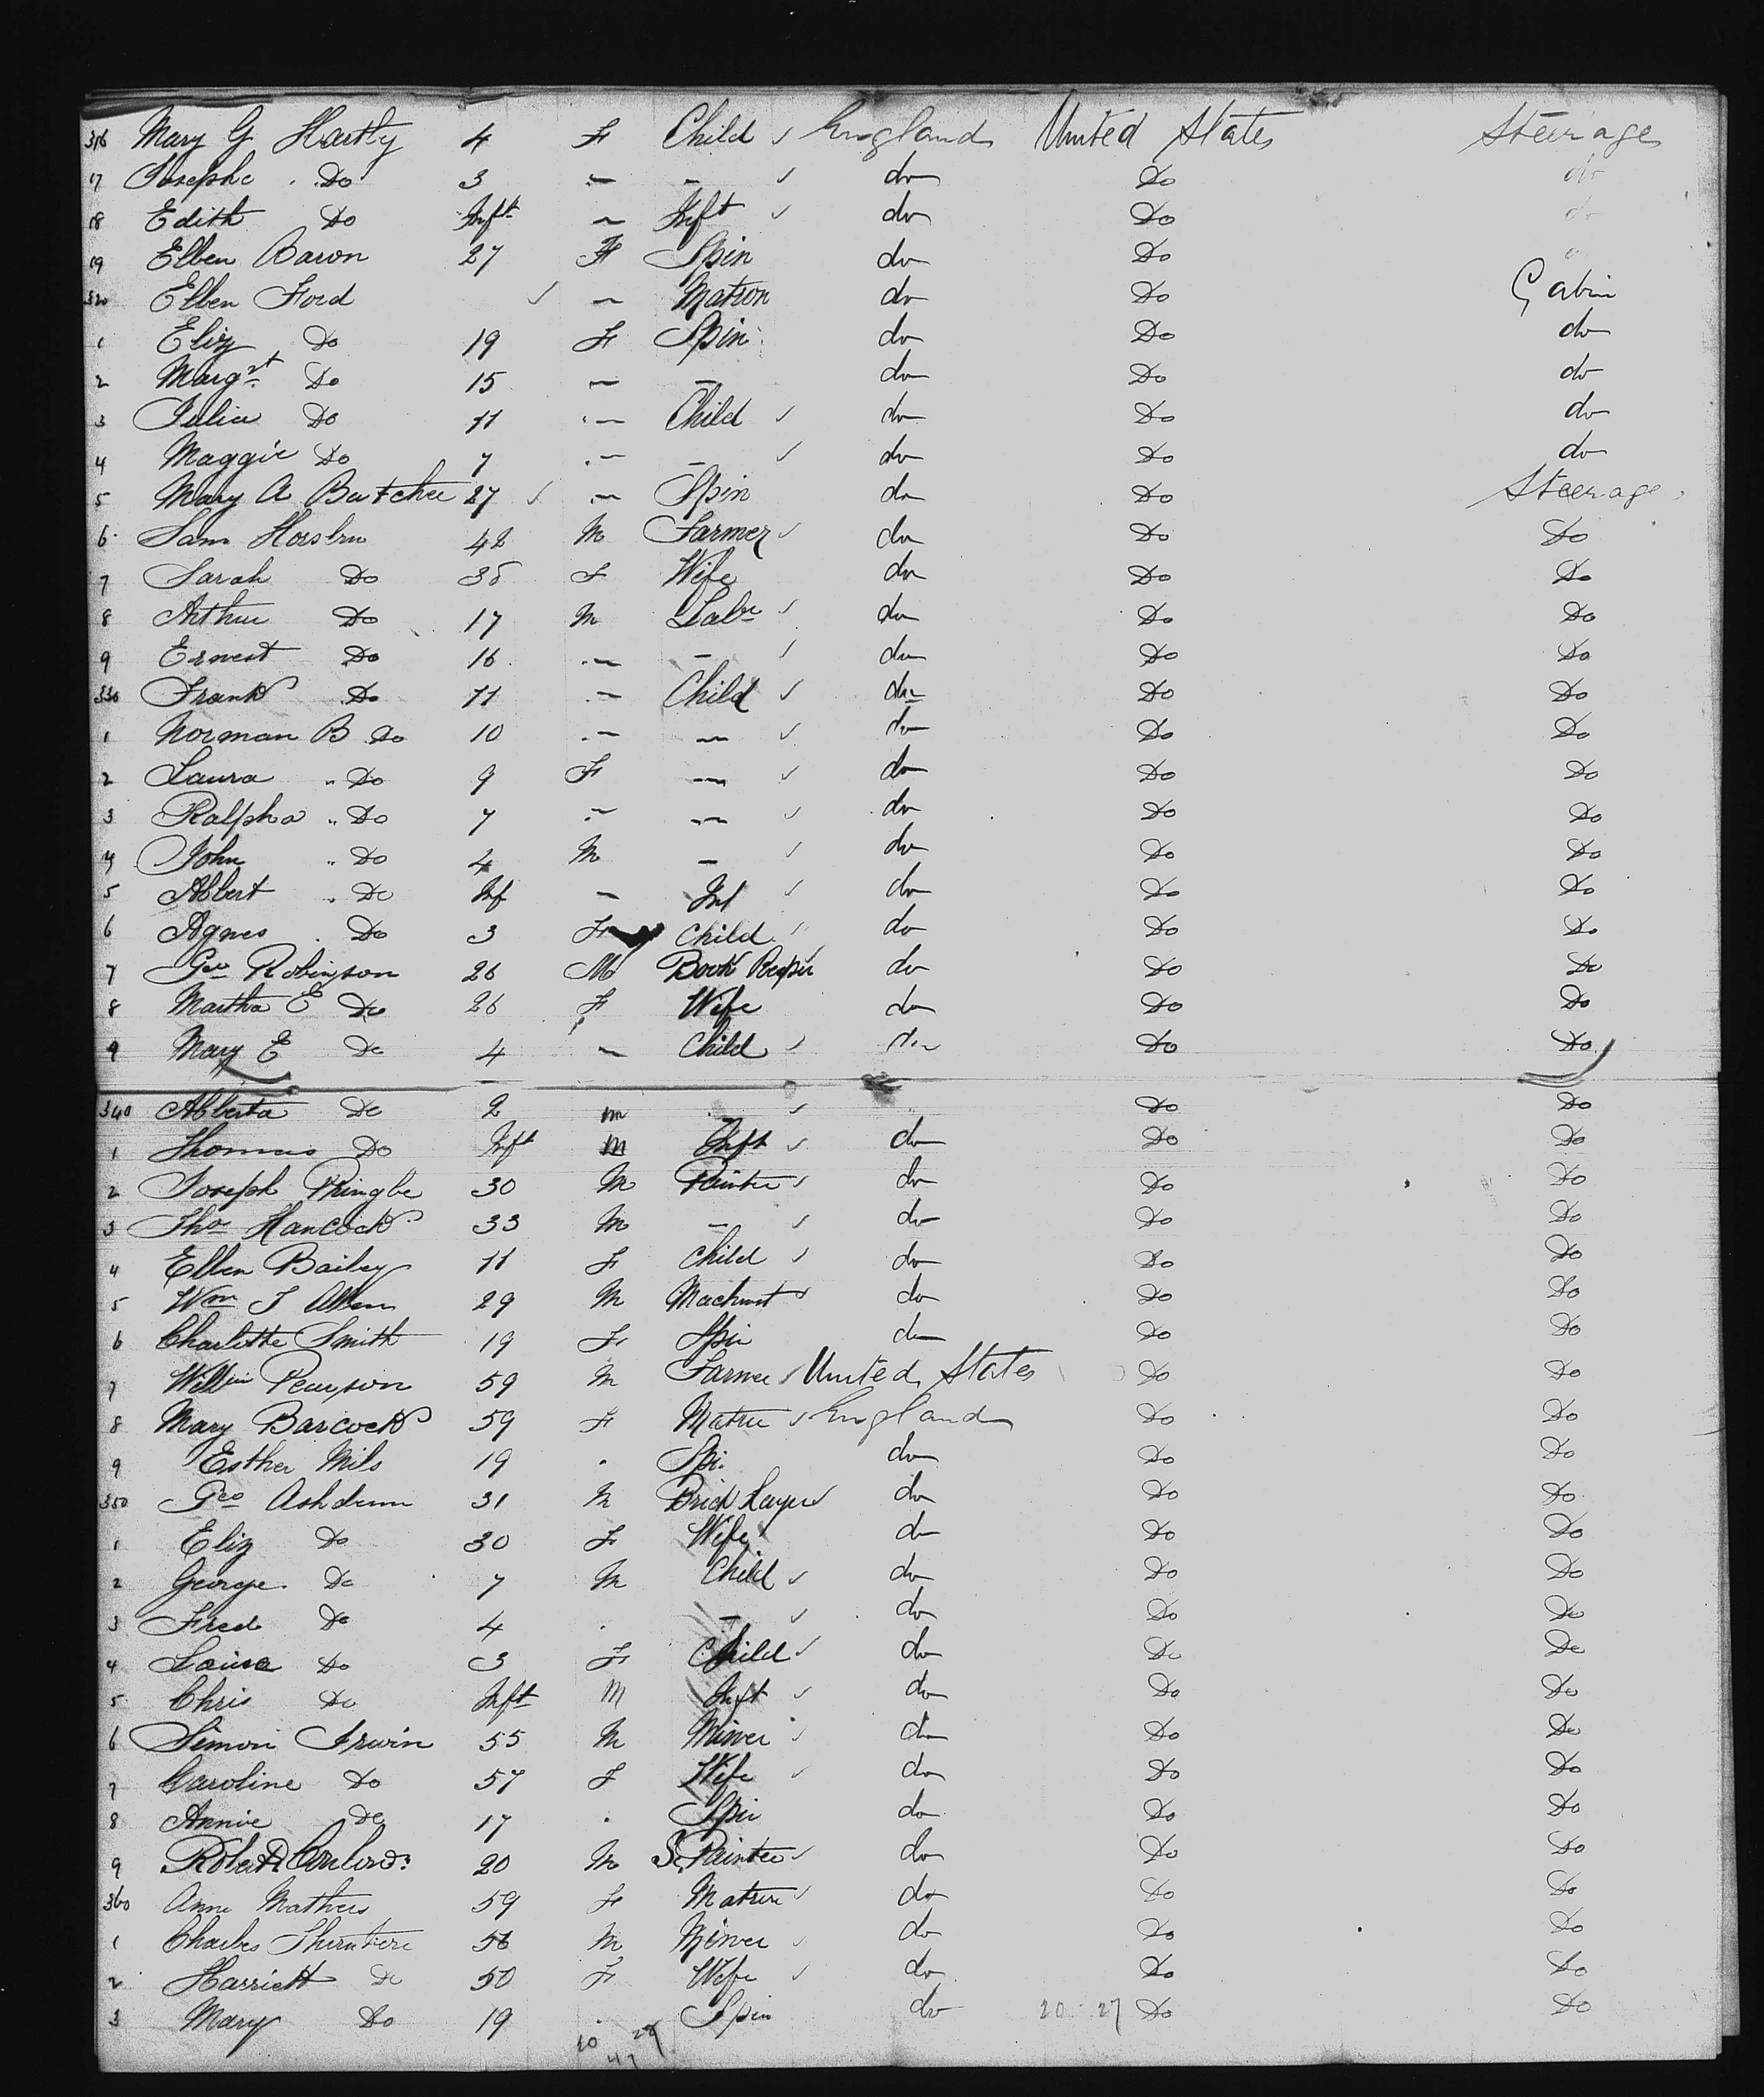 316 Mary G Hartly 4 F Child ✓ England United States Steerage
17 Josephe Do 3 — — ✓ do Do do
18 Edith Do Inft — Inft ✓ do Do do
19 Ellen Baron 27 F Spin do Do
320 Ellen Ford ✓ — Matron do Do Cabin
1 Eliz Do 19 F Spin do Do do
2 Margrt Do 15 — — do Do do
3 Julia Do 11 — Child ✓ do Do do
4 Maggie Do 7 — — ✓ do Do do
5 Mary A Butcher 27 ✓ — Spin do Do Steerage
6 Sam 42 M Farmer ✓ do Do Do
7 Sarah Do 38 F Wife do Do Do
8 Arthur Do 17 M Labr ✓ do Do Do
9 Ernest Do 16 — — ✓ do Do Do
330 Frank Do 11 — Child ✓ do Do Do
1 Norman B Do 10 — — ✓ do Do Do
2 Laura Do 9 F — ✓ do Do Do
3 Ralpha Do 7 — — ✓ do Do Do
4 John Do 4 M — ✓ do Do Do
5 Albert Do Inf — Inf ✓ do Do Do
6 Agnes Do 3 F Child do Do Do
7 Geo Robinson 26 M Book Keeper do Do Do
8 Martha E Do 26 F Wife do Do Do
9 Mary E Do 4 — Child ✓ do Do Do
340 Alberta Do 2 m — ✓ Do Do
1 Thomas Do Inft M Inft ✓ do Do Do
2 Joseph Pringle 30 M Painter ✓ do Do Do
3 Thos Hancock 33 M — ✓ do Do Do
4 Ellen Bailey 11 F Child ✓ do Do Do
5 Wm J Allen 29 M Machinist ✓ do Do Do
6 Charlotte Smith 19 F Spin do Do Do
7 Pearson 59 M Farmer ✓ United States Do Do
8 Mary Barcock 59 F Matron ✓ England Do Do
9 Esther Mils 19 . Spi. do Do Do
350 Geo Ashdown 31 M Brick Layer ✓ do Do Do
1 Eliz Do 30 F Wife do Do Do
2 George Do 7 M Child ✓ do Do Do
3 Fred Do 4 . — ✓ do Do Do
4 Louisa Do 3 F Child ✓ do Do Do
5 Chris Do Inft M Inft ✓ do Do Do
6 Simon Irwin 55 M Miner ✓ do Do Do
7 Caroline Do 57 F Wife ✓ do Do Do
8 Annie Do 17 . Spin do Do Do
9 Robert 20 M S. Painter ✓ do Do Do
360 Ann Mathers 59 F Matron ✓ do Do Do
1 Charles 56 M Miner ✓ do Do Do
2 Harriett Do 50 F Wife ✓ do Do Do
3 Mary Do 19 . Spin do 20 27 Do Do
20 27
47